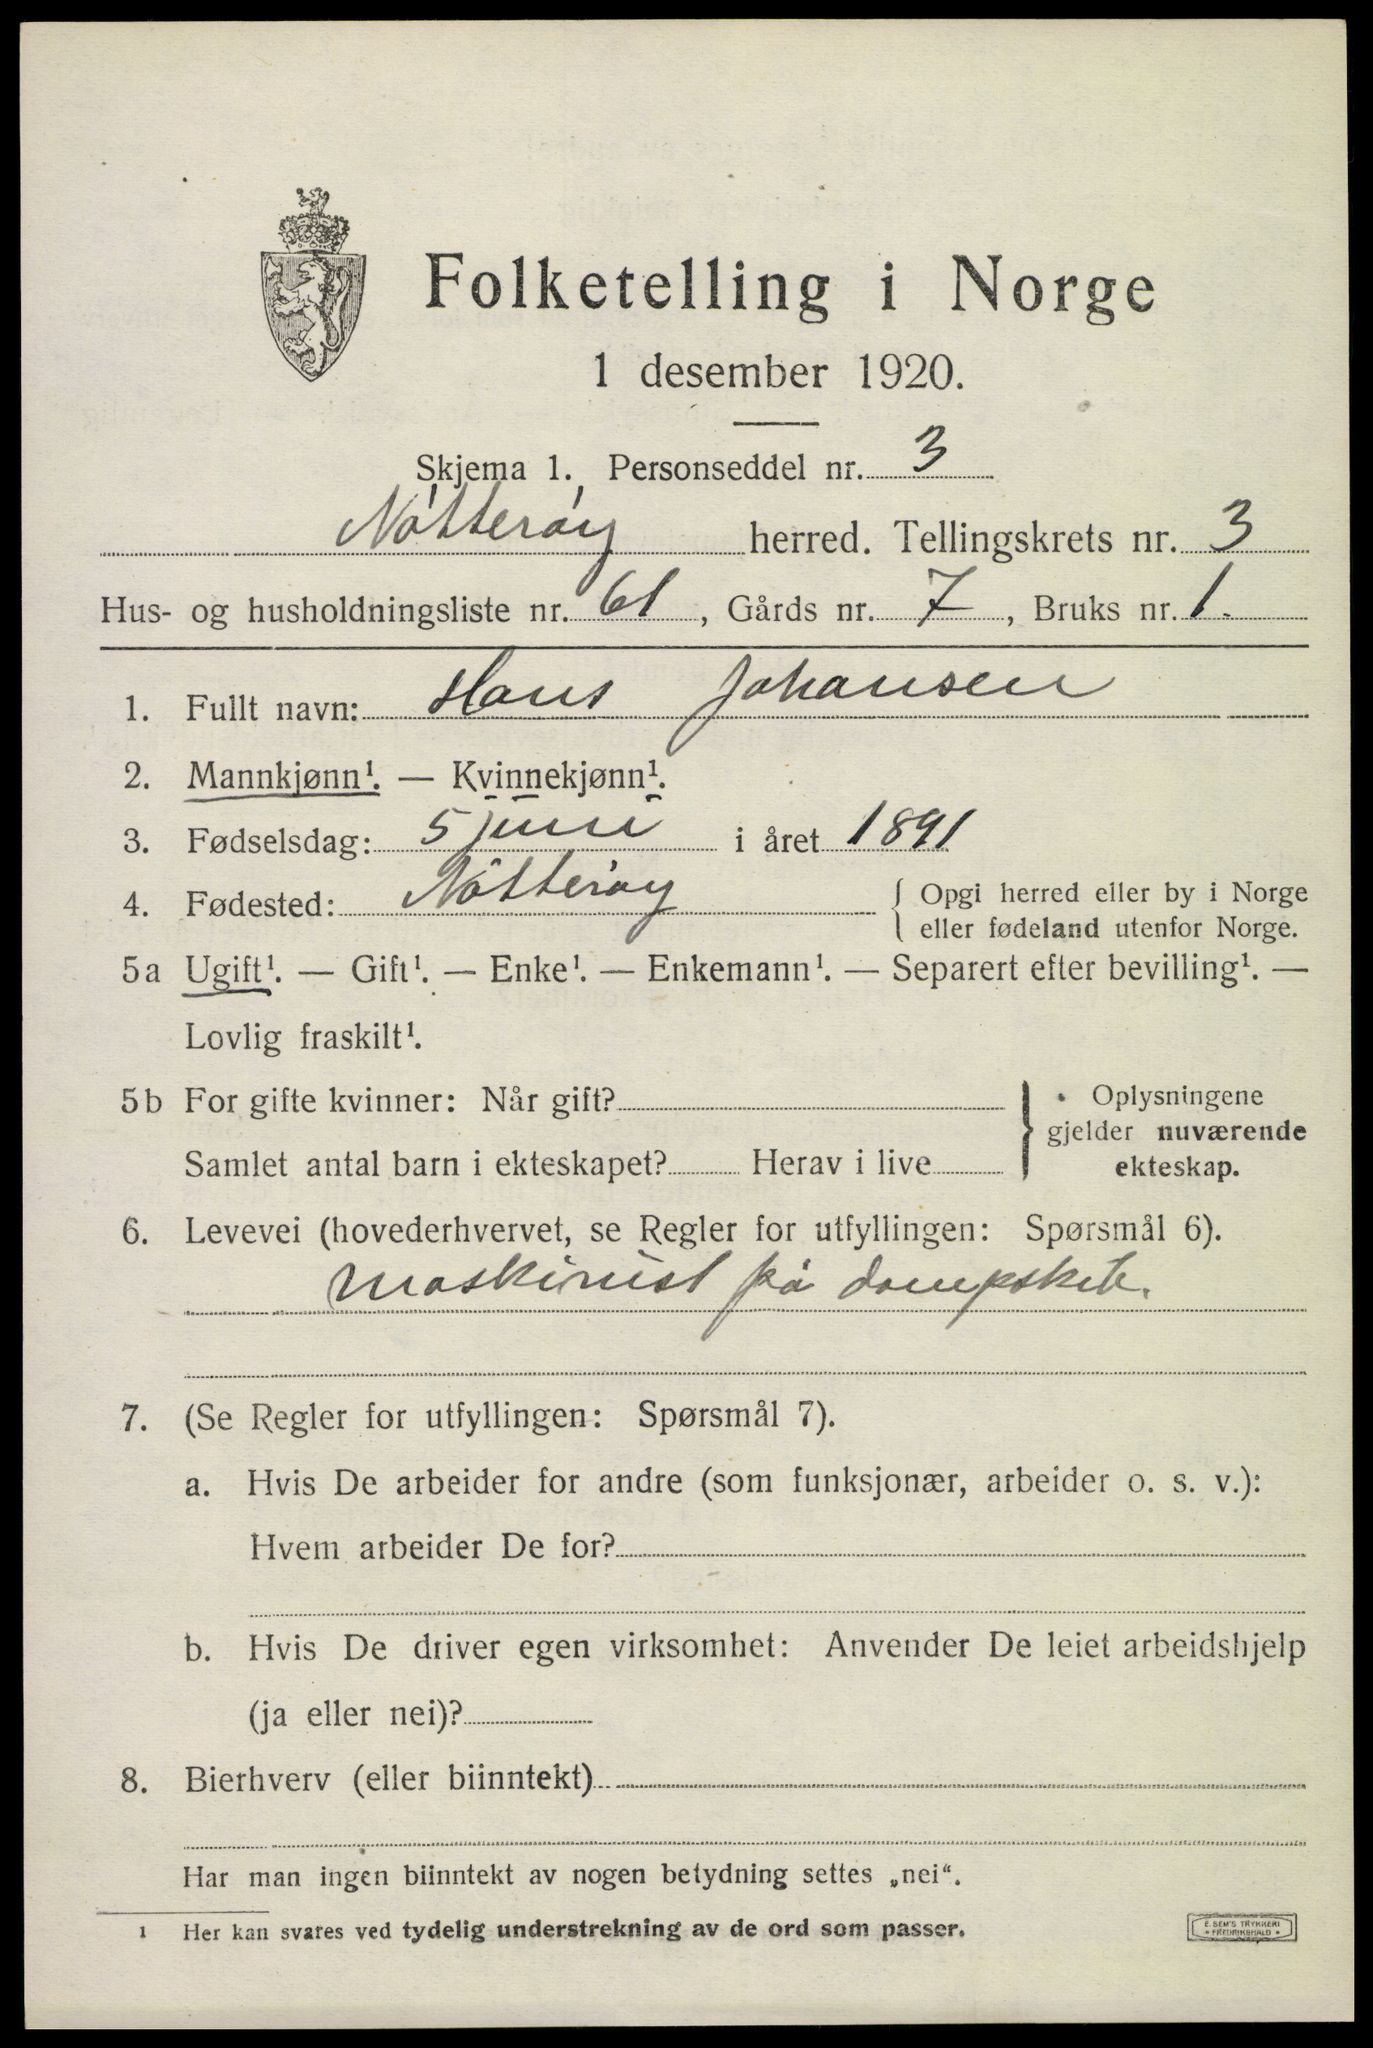 Folketelling i Norge
1 desember 1920.
Skjema 1. Personseddel nr. 3
Nøtterøy herred. Tellingskrets nr. 3
Hus- og husholdningsliste nr. 61, Gårds nr. 7, Bruks nr. 1.
1. Fullt navn: Hans Johansen
2. Mannkjønn¹. — Kvinnekjønn¹.
3. Fødselsdag: 5 juni i året 1891
4. Fødested: Nøtterøy { Opgi herred eller by i Norge
eller fødeland utenfor Norge.
5a Ugift¹. — Gift¹. — Enke¹. — Enkemann¹. — Separert efter bevilling¹. —
Lovlig fraskilt¹.
5b For gifte kvinner: Når gift? } Oplysningene
gjelder nuværende
Samlet antal barn i ekteskapet? Herav i live ekteskap.
6. Levevei (hovederhvervet, se Regler for utfyllingen: Spørsmål 6).
Maskinist på dampskib.
7. (Se Regler for utfyllingen: Spørsmål 7).
a. Hvis De arbeider for andre (som funksjonær, arbeider o. s. v.):
Hvem arbeider De for?
b. Hvis De driver egen virksomhet: Anvender De leiet arbeidshjelp
(ja eller nei)?
8. Bierhverv (eller biinntekt)
Har man ingen biinntekt av nogen betydning settes „nei“.
1 Her kan svares ved tydelig understrekning av de ord som passer.
E. SEM'S TRYKKERI
* FREDRIKSHALD *